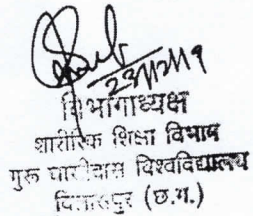 23/12/19
विभागाध्यक्ष
शारीरिक शिक्षा विभाग
गुरू घासीदास विश्वविद्यालय
बिलासपुर (छ.ग.)